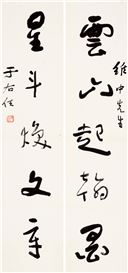 維中先生
雲山起翰墨
星斗煥文章
于右任